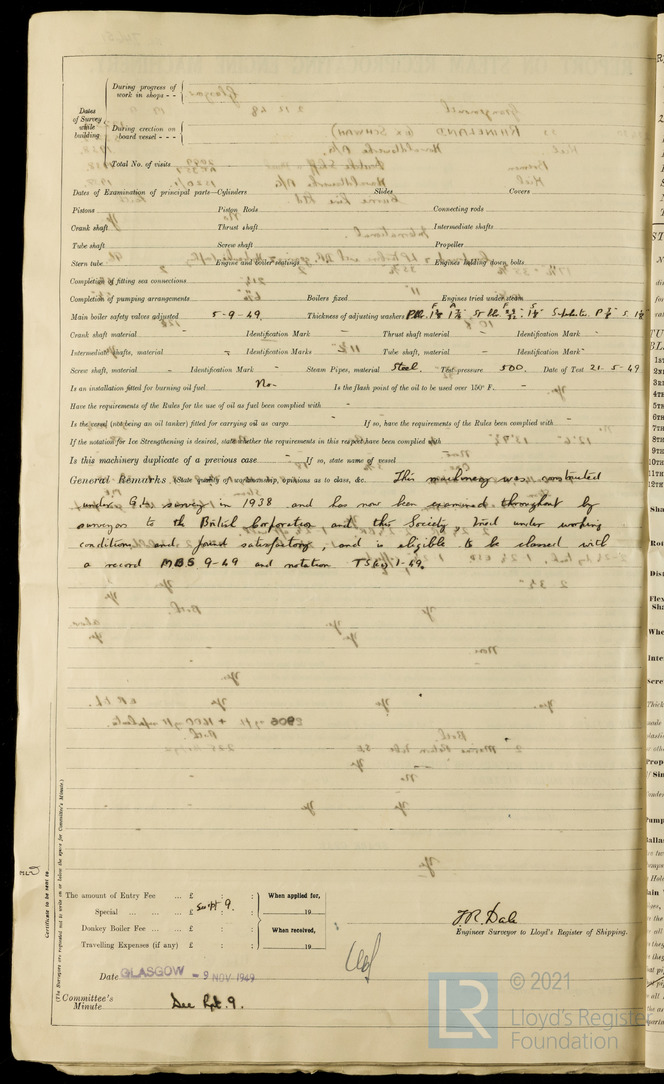 During progress of work in shops - -
Dates of Survey while building
During erection on board vessel - - -
Total No. of visits
Dates of Examination of principal parts—Cylinders Slides Covers
Pistons Piston Rods Connecting rods
Crank shaft Thrust shaft Intermediate shafts
Tube shaft Screw shaft Propeller
Stern tube Engine and boiler seatings Engines holding down bolts
Completion of fitting sea connections
Completion of pumping arrangements Boilers fixed Engines tried under steam
Main boiler safety valves adjusted 5-9-49 Thickness of adjusting washers
Crank shaft material - Identification Mark - Thrust shaft material - Identification Mark -
Intermediate shafts, material - Identification Marks - Tube shaft, material - Identification Mark -
Screw shaft, material - Identification Mark - Steam Pipes, material Steel. Test pressure 500. Date of Test 21-5-49
Is an installation fitted for burning oil fuel No- Is the flash point of the oil to be used over 150° F. -
Have the requirements of the Rules for the use of oil as fuel been complied with -
Is the vessel (not being an oil tanker) fitted for carrying oil as cargo - If so, have the requirements of the Rules been complied with -
If the notation for Ice Strengthening is desired, state whether the requirements in this respect have been complied with
Is this machinery duplicate of a previous case - If so, state name of vessel
General Remarks (State quality of workmanship, opinions as to class, &c. This machinery was constructed
under G.L. survey in 1938 and has now been examined throughout by
surveyors to the British Corporation and this Society, tried under working
conditions and found satisfactory, and is eligible to be classed with
a record MBS 9-49 and notation TS(CL) 1-49.
Certificate to be sent to
(The Surveyors are requested not to write on or below the space for Committee's Minute.)
The amount of Entry Fee ... £ : : When applied for,
Special ... ... ... £ See Rpt 9. 19
Donkey Boiler Fee ... ... £ : : When received,
Travelling Expenses (if any) £ : : 19
J.R. Dale
Engineer Surveyor to Lloyd's Register of Shipping.
Date GLASGOW - 9 NOV 1949
Committee's Minute See Rpt. 9.
LR
© 2021
Lloyd's Register
Foundation